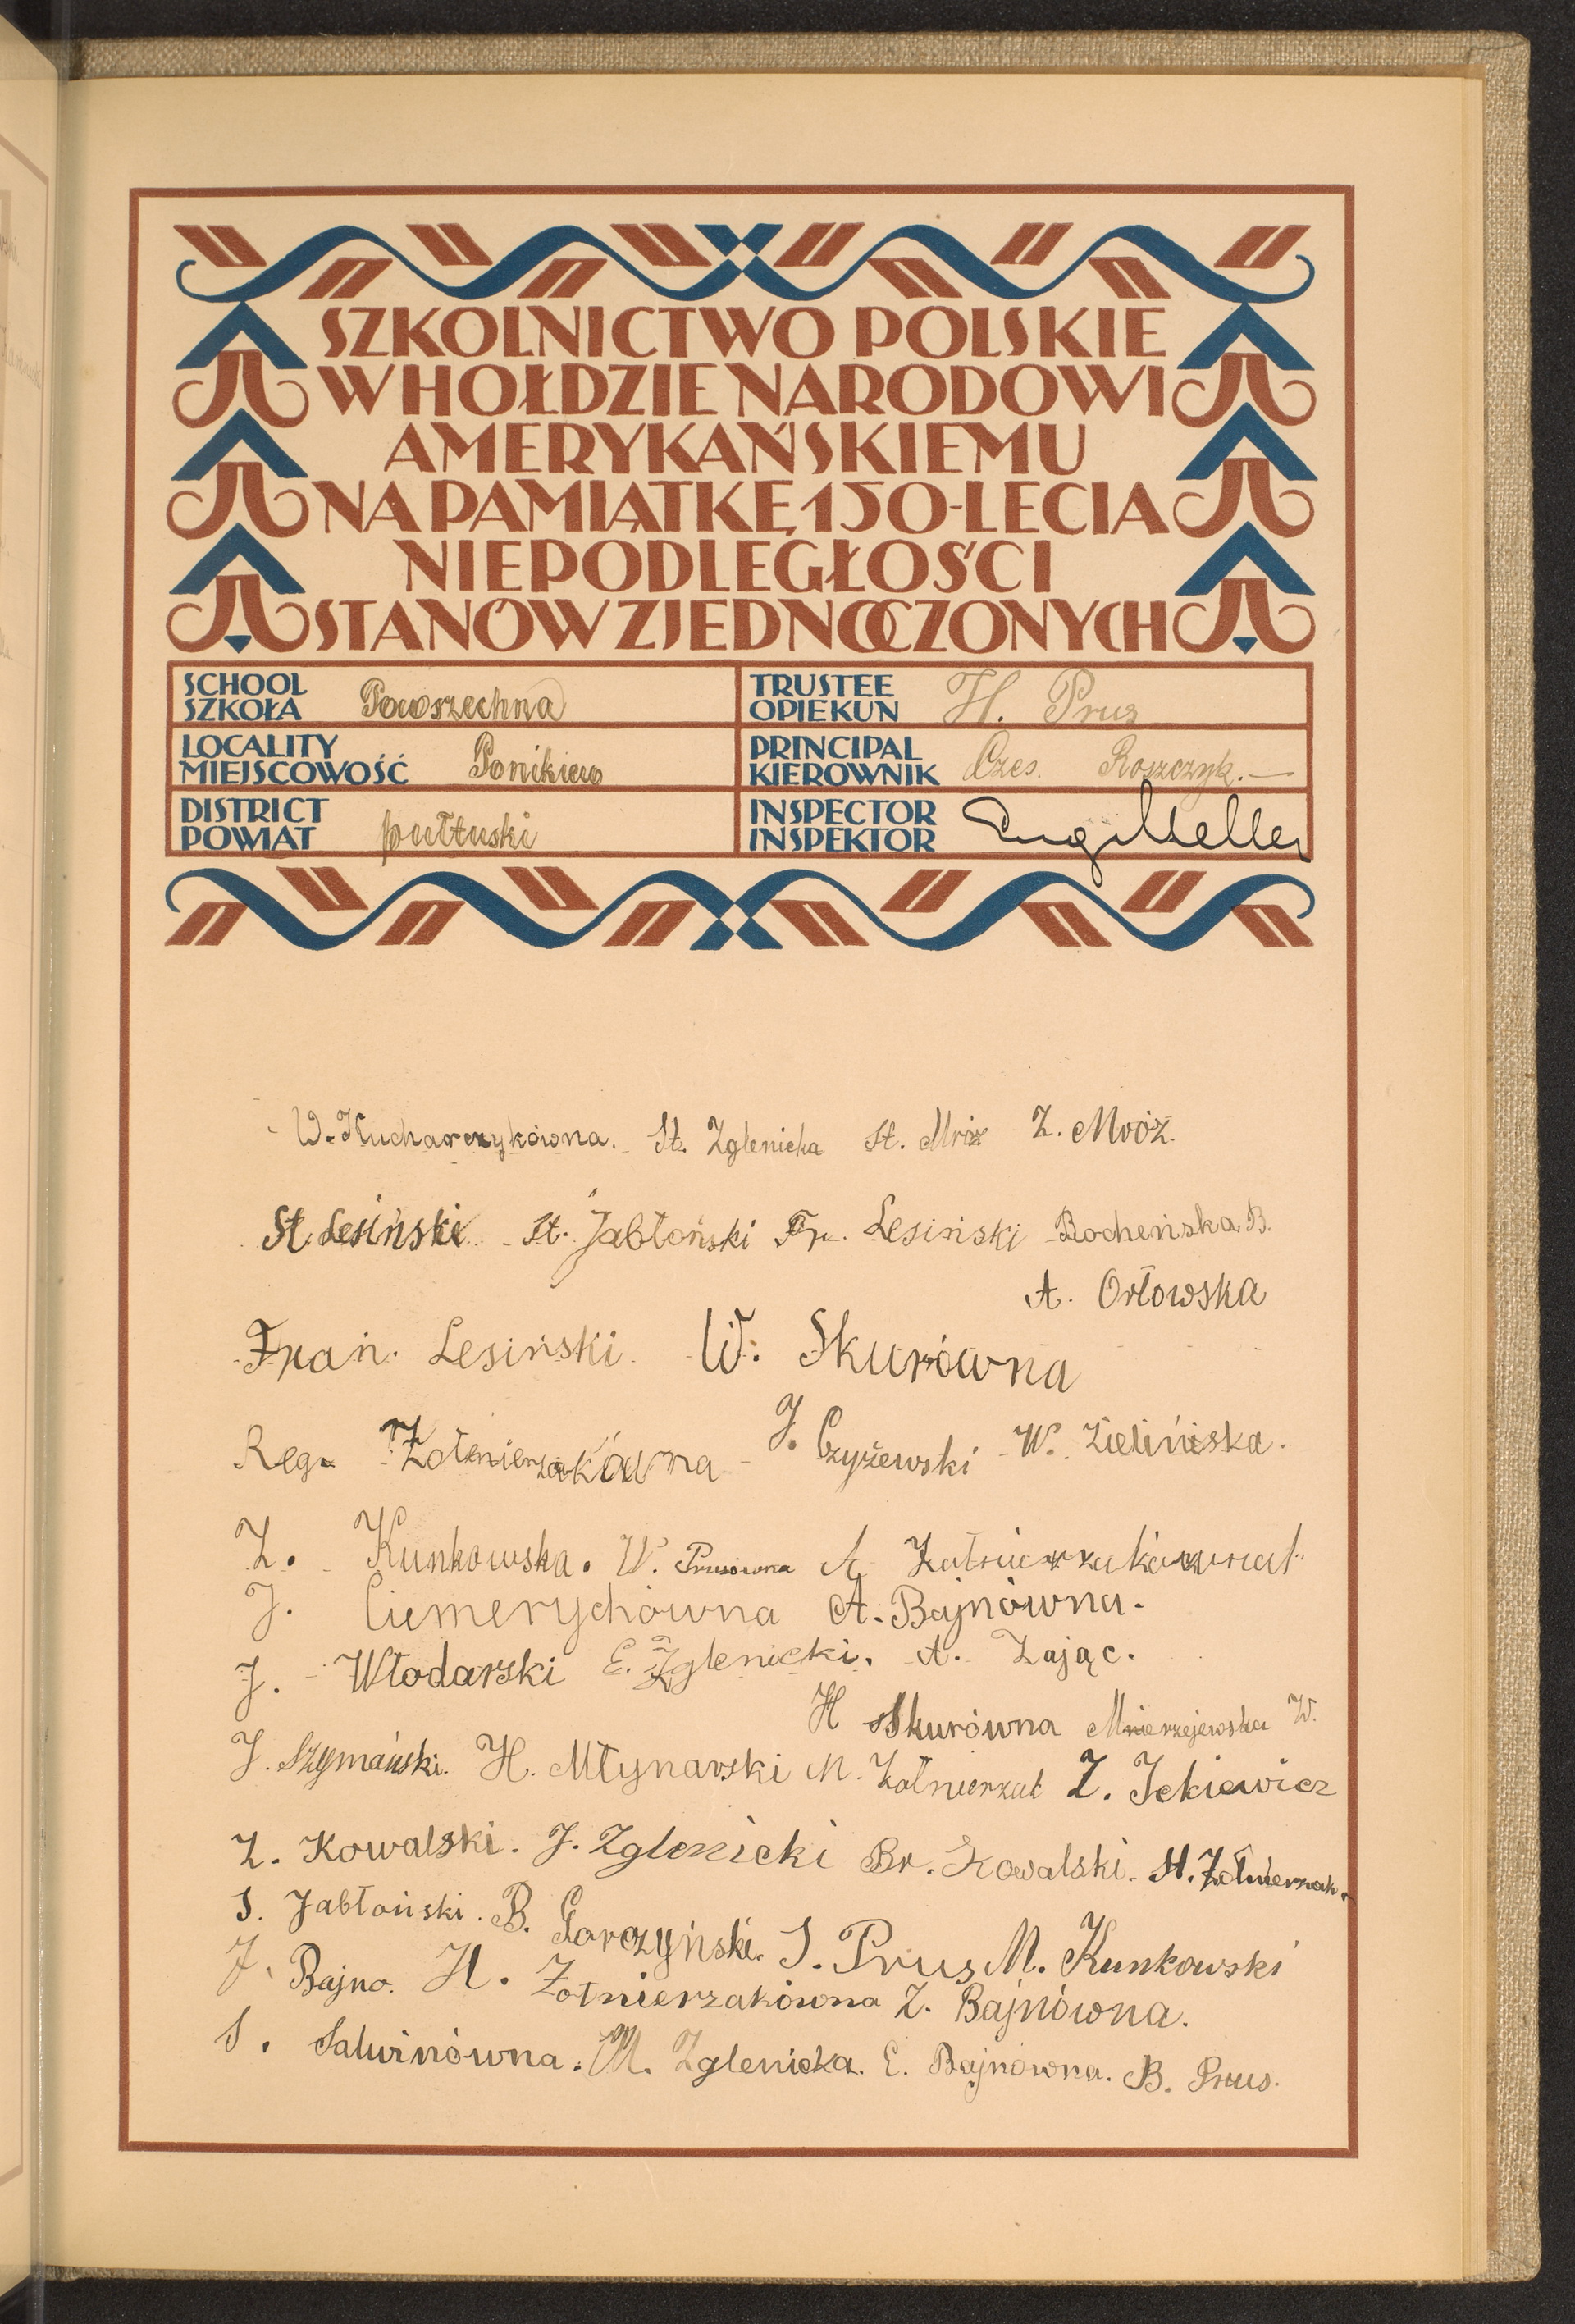 SZKOLNICTWO POLSKIE
W HOŁDZIE NARODOWI
AMERYKAŃSKIEMU
NA PAMIĄTKĘ 150-LECIA
NIEPODLEGŁOŚCI
STANÓW ZJEDNOCZONYCH
SCHOOL SZKOŁA Powszechna
TRUSTEE OPIEKUN H. Prus
LOCALITY MIEJSCOWOŚĆ Ponikiew
PRINCIPAL KIEROWNIK Czes. Roszczyk.—
DISTRICT POWIAT pułtuski
INSPECTOR INSPEKTOR
W. Kucharczykówna. St. Zglenicka St. Mróz Z. Mróz.
St. Lesiński St. Jabłoński Fr. Lesiński Bocheńska B.
A. Orłowska
Fran. Lesiński. W. Skurówna
Reg. Żołnierzakówna J. Czyżewski W. Zielińska.
Z. Kunkowska. W. Prusówna A
J. Ciemerychówna A. Bajnówna.
J. Włodarski E. Zglenicki. A. Zając.
H Skurówna Mierzejewska W.
J. Szymański. H. Młynarski M. Żołnierzak Z. Ickiewicz
Z. Kowalski. J. Zglenicki Br. Kowalski. St. Żołnierzak.
S. Jabłoński. B. Garczyński. S. Prus M. Kunkowski
J. Bajno. H. Żołnierzakówna Z. Bajnówna.
S. Salwinówna. M. Zglenicka. E. Bajnówna. B. Prus.